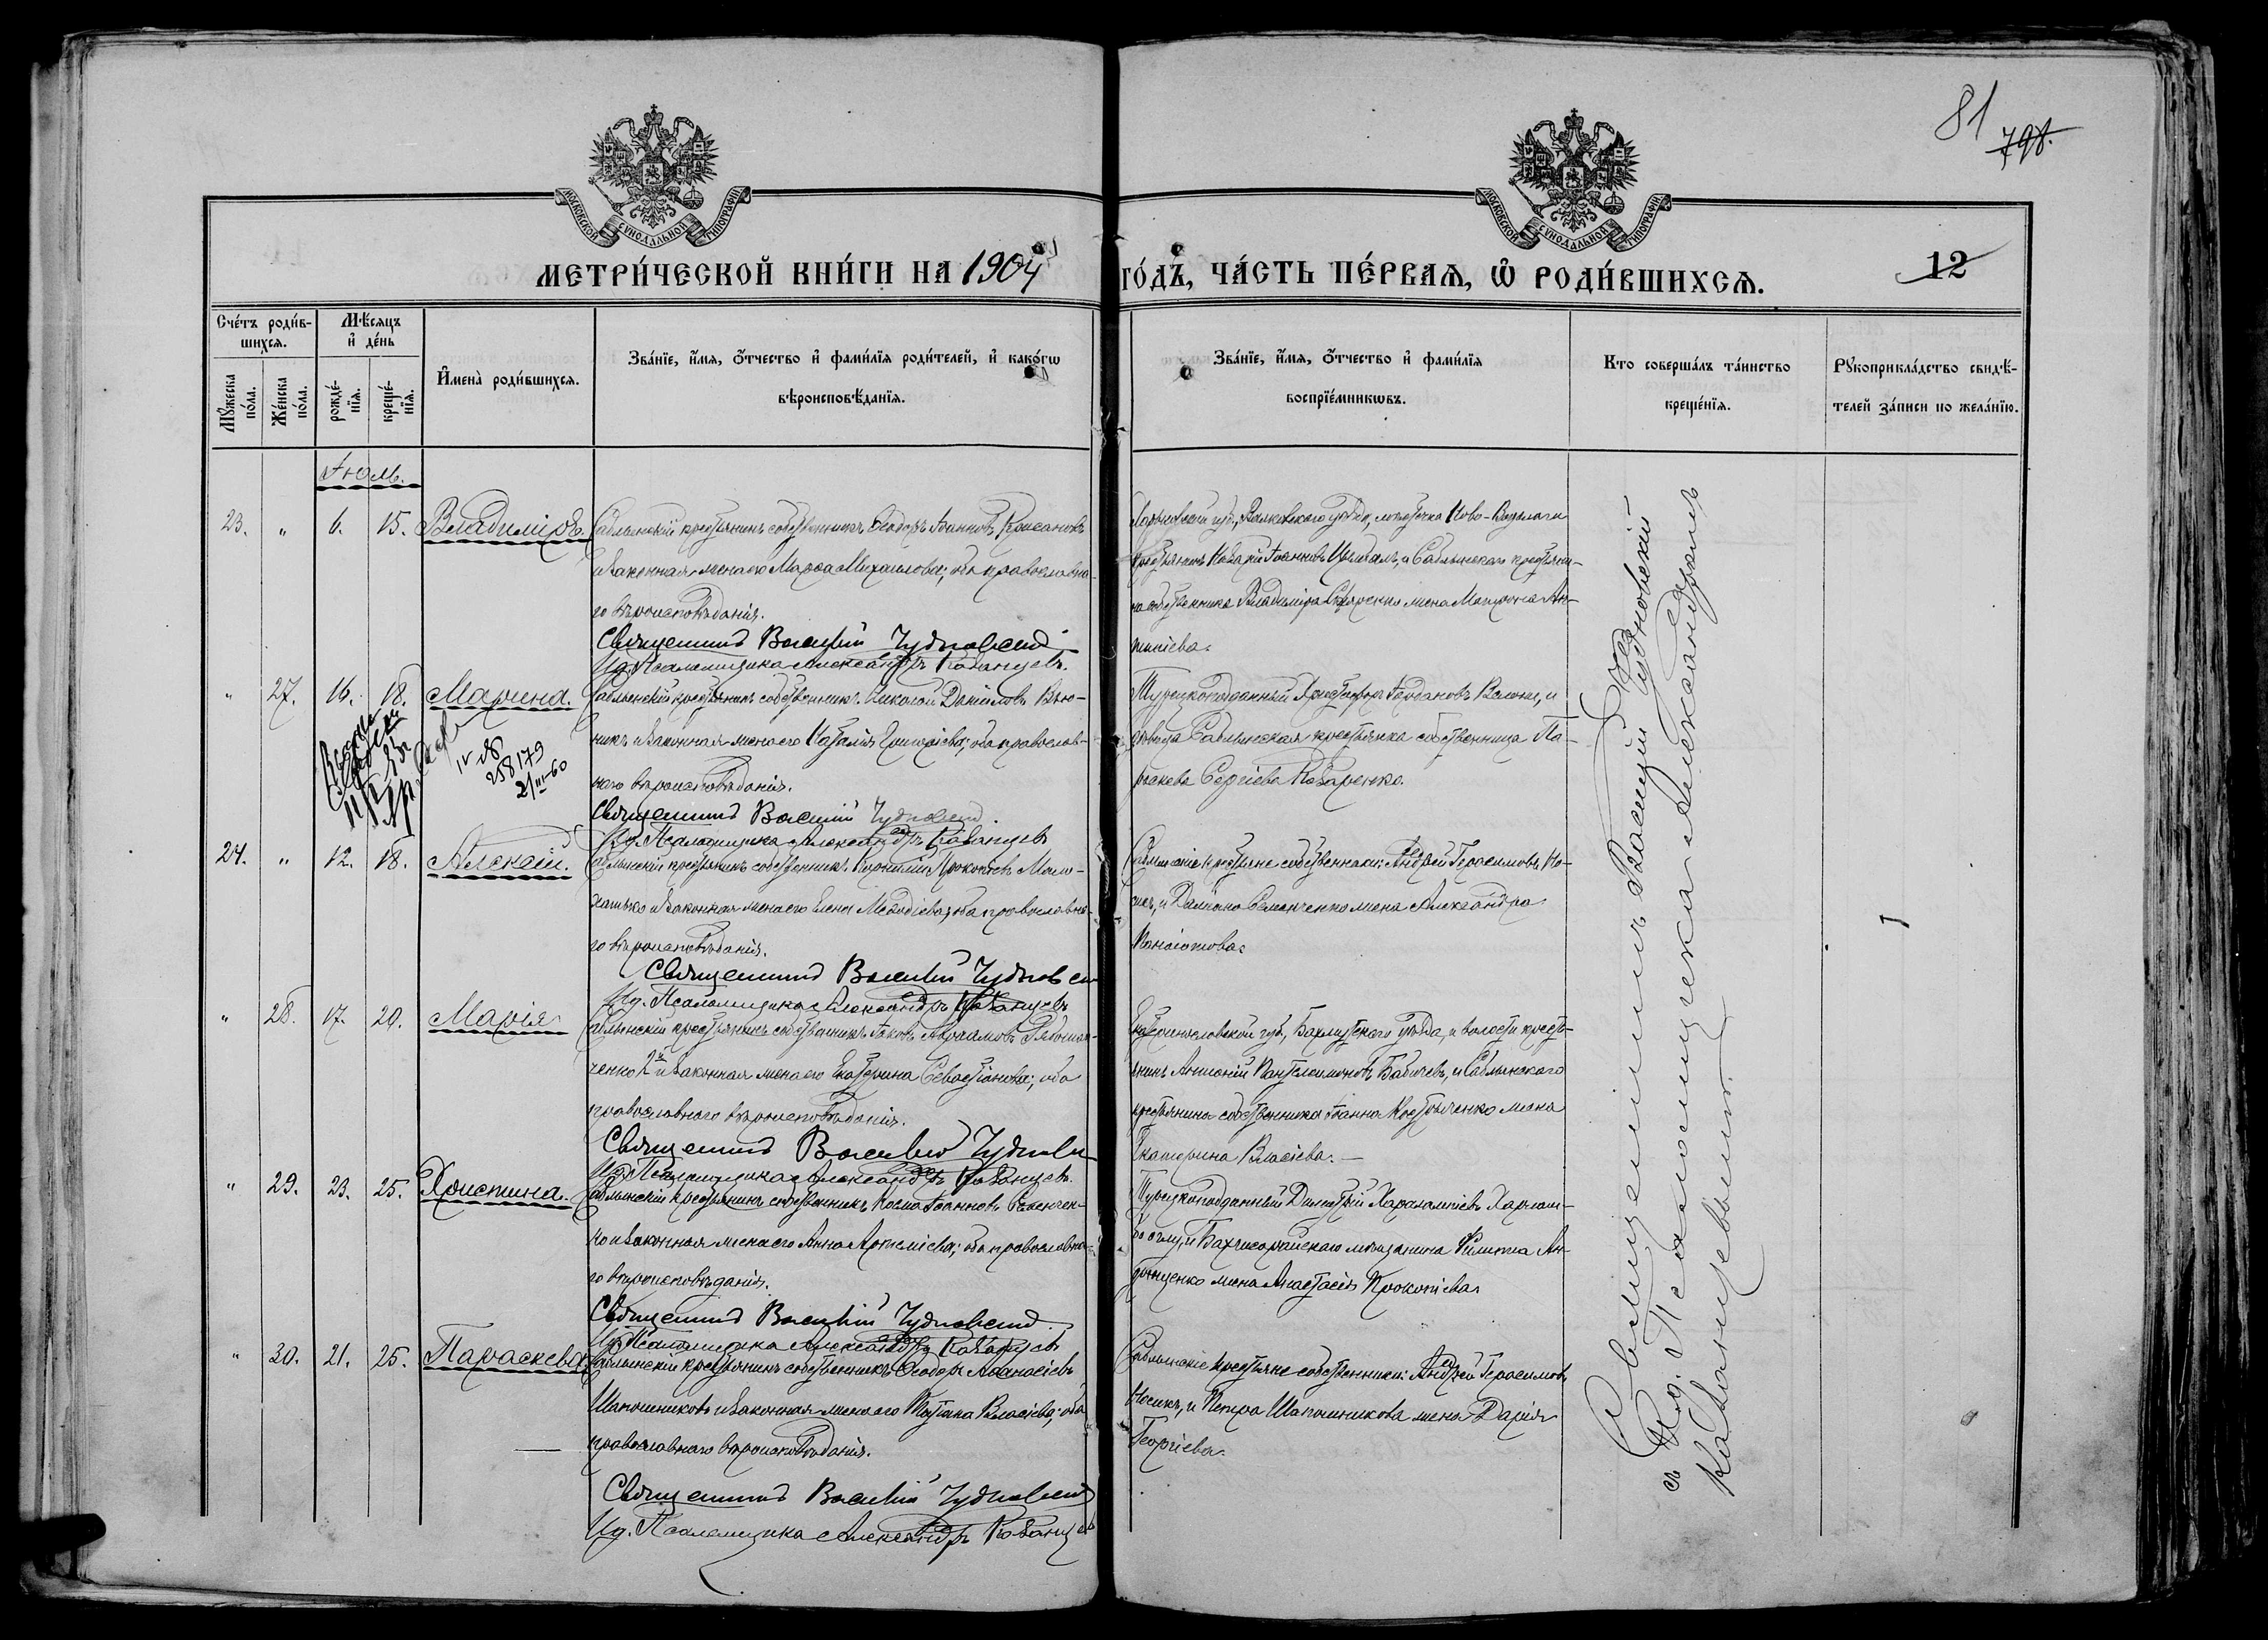 81
798.
МОСКОВСКОЙ СУНОДАЛЬНОЙ ТИПОГРАФІИ
МОСКОВСКОЙ СУНОДАЛЬНОЙ ТИПОГРАФІИ
МЕТРИ́ЧЕСКОЙ КНИ́ГИ НА 1904
ГО́ДЪ, ЧА́СТЬ ПЕ́РВАЯ, Ѡ҆ РОДИ́ВШИХСѦ.
12
Сче́тъ роди́в-
шихсѧ.
Мѣ́сѧцъ
и҆ де́нь
Мꙋ́жеска
по́ла.
Же́нска
по́ла.
рожде́-
нїѧ.
креще́-
нїѧ.
И҆мена̀ роди́вшихсѧ.
Зва́нїе, и҆́мѧ, ѻ҆́тчество и҆ фами́лїѧ роди́телей, и҆ како́гѡ
вѣроисповѣ́данїѧ.
Зва́нїе, и҆́мѧ, ѻ҆́тчество и҆ фами́лїѧ
воспрїе́мникѡвъ.
Кто соверша́лъ та́инство
креще́нїѧ.
Рꙋкоприкла́дство свидѣ́-
телей за́писи по жела́нїю.
Іюль.
23. " 6. 15. Владиміръ.
Саблынскій крестьянинъ собственникъ Ѳеодоръ Іоанновъ
и законная жена его Марѳа Михаилова; оба православна-
го вѣроисповѣданія.
Священникъ Василій Чудновскій
Ид. Псаломщика Александръ Кованцевъ.
Харьковской губ., Валковского уѣзда, мѣстечка Ново-Водолаги
крестьянинъ Іоанновъ и Саблынскаго крестьяни-
на собственника Владиміра жена Матрона Ан-
типіева.
" 27. 16. 18. Марина.
Саблынскій крестьянинъ собственникъ Николай Даниловъ Вью-
никъ и законная жена его Наталія Григоріева; оба православ-
наго вѣроисповѣданія.
Священникъ Василій Чудновскій.
Ид. Псаломщика Александръ Кованцевъ
IV ЯВ
258179
2/III-60
Турецкоподданный и
дѣвица Саблынская крестьянка собственница Па-
раскева Сергіева Назаренко.
24. " 12. 18. Алексій.
Саблынскій крестьянинъ собственникъ Прокопіевъ
и законная жена его Елена Меѳодіева; оба православна-
го вѣроисповѣданія.
Священникъ Василій Чудновскій
Ид. Псаломщика Александръ Кованцевъ
Саблынскіе крестьяне собственники: Андрей Герасимовъ Но-
сикъ, и Даміана Семенченко жена Александра
Панаіотова.
" 28. 17. 20. Марія
Саблынскій крестьянинъ собственникъ Іаковъ Авраамовъ
ченко 2й и законная жена его Екатерина Севастіанова; оба
православнаго вѣроисповѣданія.
Священникъ Василій Чудновскій
Ид. Псаломщика Александръ Кованцевъ.
Екатеринославской губ., Бахмутскаго уѣзда, и волости кресть-
янинъ Антоній Пантелеимоновъ Бабичевъ, и Саблынскаго
крестьянина собственника Іоанна жена
Екатерина Власіева. —
" 29. 23. 25. Христина.
Саблынскій крестьянинъ собственникъ Косма Іоанновъ
ко и законная жена его Анна Артеміева; оба православна-
го вѣроисповѣданія.
Священникъ Василій Чудновскій
Ид. Псаломщика Александръ Кованцевъ
Турецкоподданный Димитрій Харалампіевъ
и Бахчисарайскаго мѣщанина Филиппа Ан-
жена Анастасія Прокопіева.
" 30. 21. 25. Параскева
Саблынскій крестьянинъ собственникъ Ѳеодоръ Аѳанасіевъ
Шапошниковъ и законная жена его Татіана Власіева; оба
православнаго вѣроисповѣданія.
Священникъ Василій Чудновскій
Ид. Псаломщика Александръ Кованцевъ
Саблынскіе крестьяне собственники: Андрей Герасимовъ
Носикъ, и Петра Шапошникова жена Дарія
Георгіева.
Священникъ Василій Чудновскій
съ Ид. Псаломщика Александромъ
Кованцевымъ.